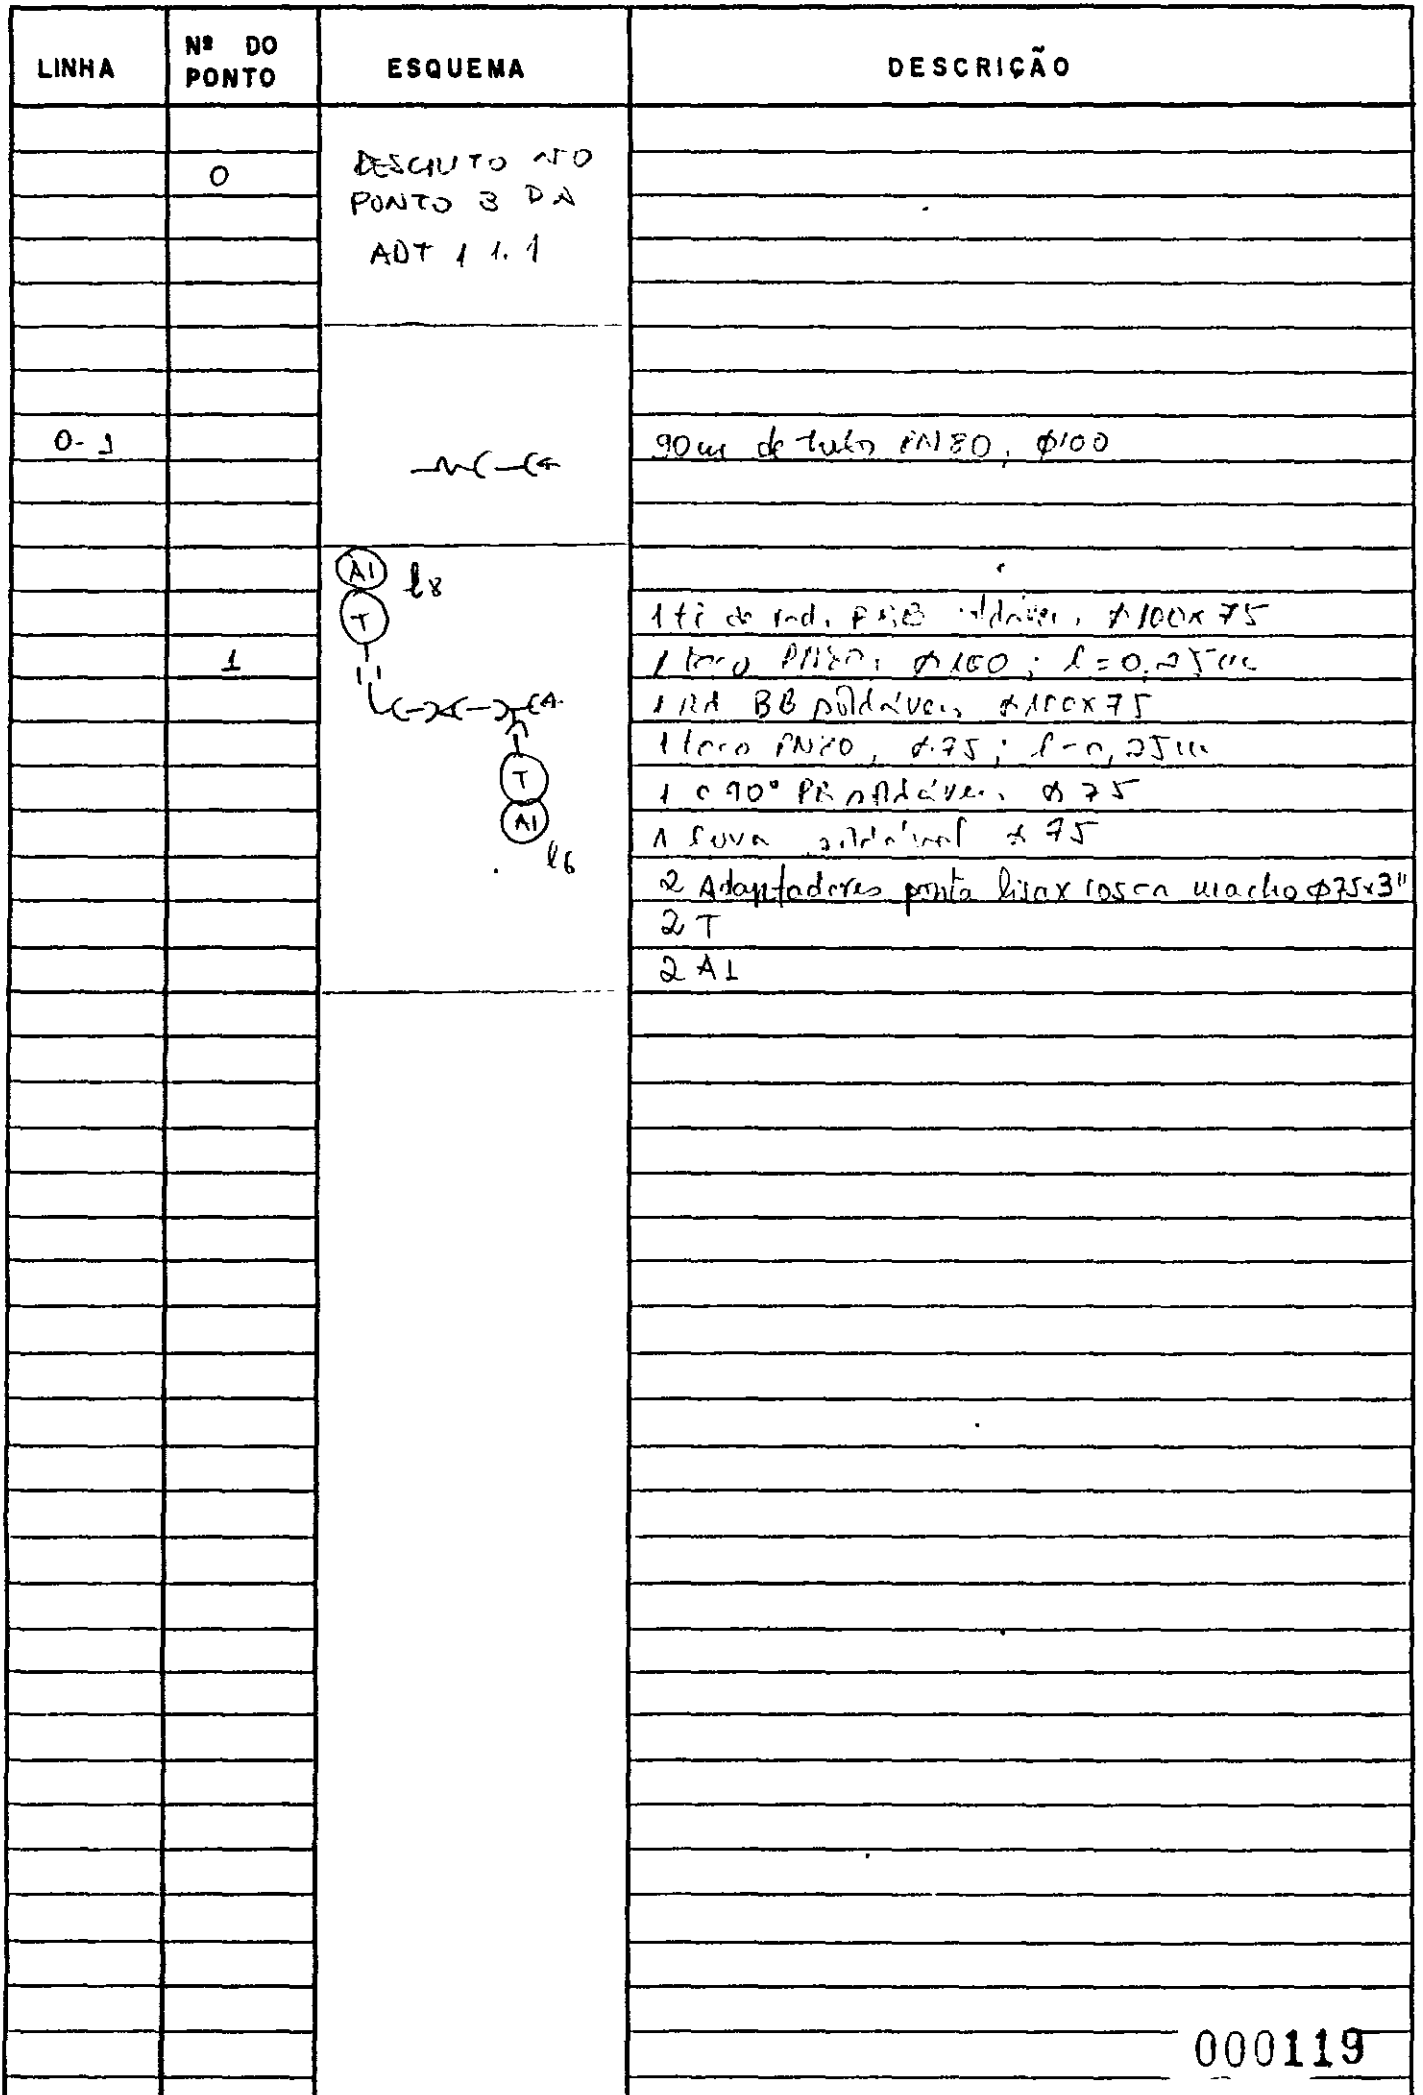 LINHA
Nº DO PONTO
ESQUEMA
DESCRIÇÃO
0
DESCRITO NO
PONTO 3 DA
ADT 1 1.1
0-1
90m de tubo PN80, φ100
A1 l8
T
1
T
A1
l6
1 tê de red. soldável, φ100x75
1 toco PN80, φ100; l=0,25m
1 BB soldável, φ100x75
1 toco PN80, φ75; l=0,25m
1 C 90° soldável, φ75
1 luva soldável φ75
2 Adaptadores ponta lisa x rosca macho φ75x3"
2 T
2 A1
000119